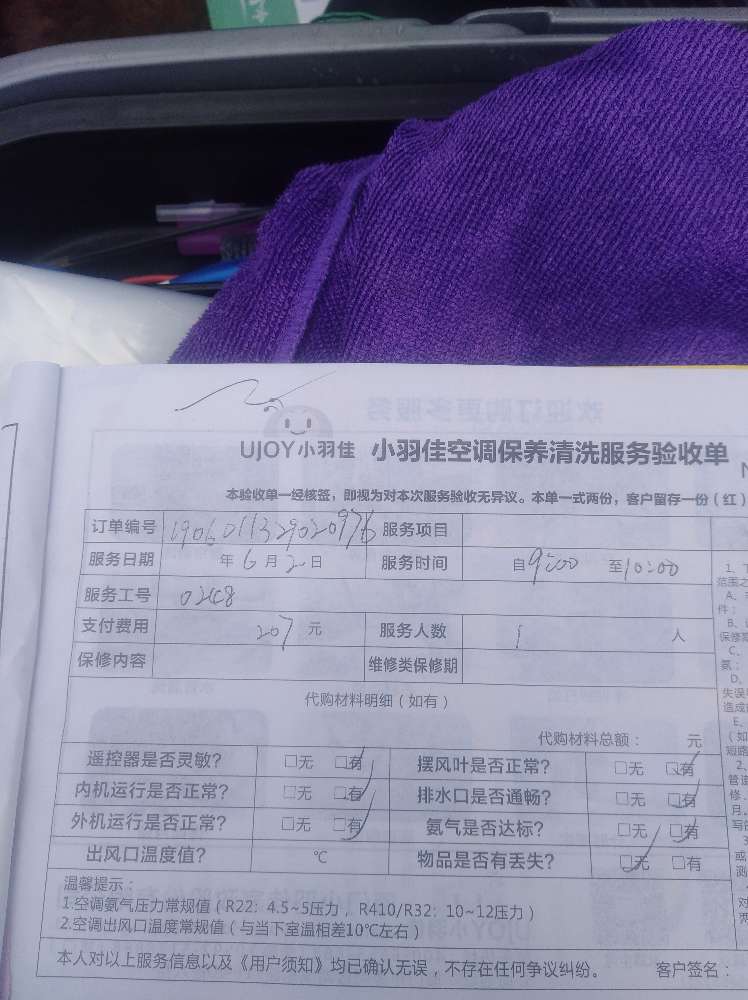 UJOY小羽佳 小羽佳空调保养清洗服务验收单
本验收单一经核签，即视为对本次服务验收无异议。本单一式两份，客户留存一份（红）
订单编号 1906011329020976 服务项目
服务日期 年6月2日 服务时间 自9:00 至10:00
服务工号 0248
支付费用 207元 服务人数 1人
保修内容 维修类保修期
代购材料明细（如有）
代购材料总额： 元
遥控器是否灵敏？ □无 □有 摆风叶是否正常？ □无 □有
内机运行是否正常？ □无 □有 排水口是否通畅？ □无 □有
外机运行是否正常？ □无 □有 氨气是否达标？ □无 □有
出风口温度值？ ℃ 物品是否有丢失？ □无 □有
温馨提示：
1.空调氨气压力常规值（R22：4.5~5压力， R410/R32：10~12压力）
2.空调出风口温度常规值（与当下室温相差10℃左右）
本人对以上服务信息以及《用户须知》均已确认无误，不存在任何争议纠纷。 客户签名：